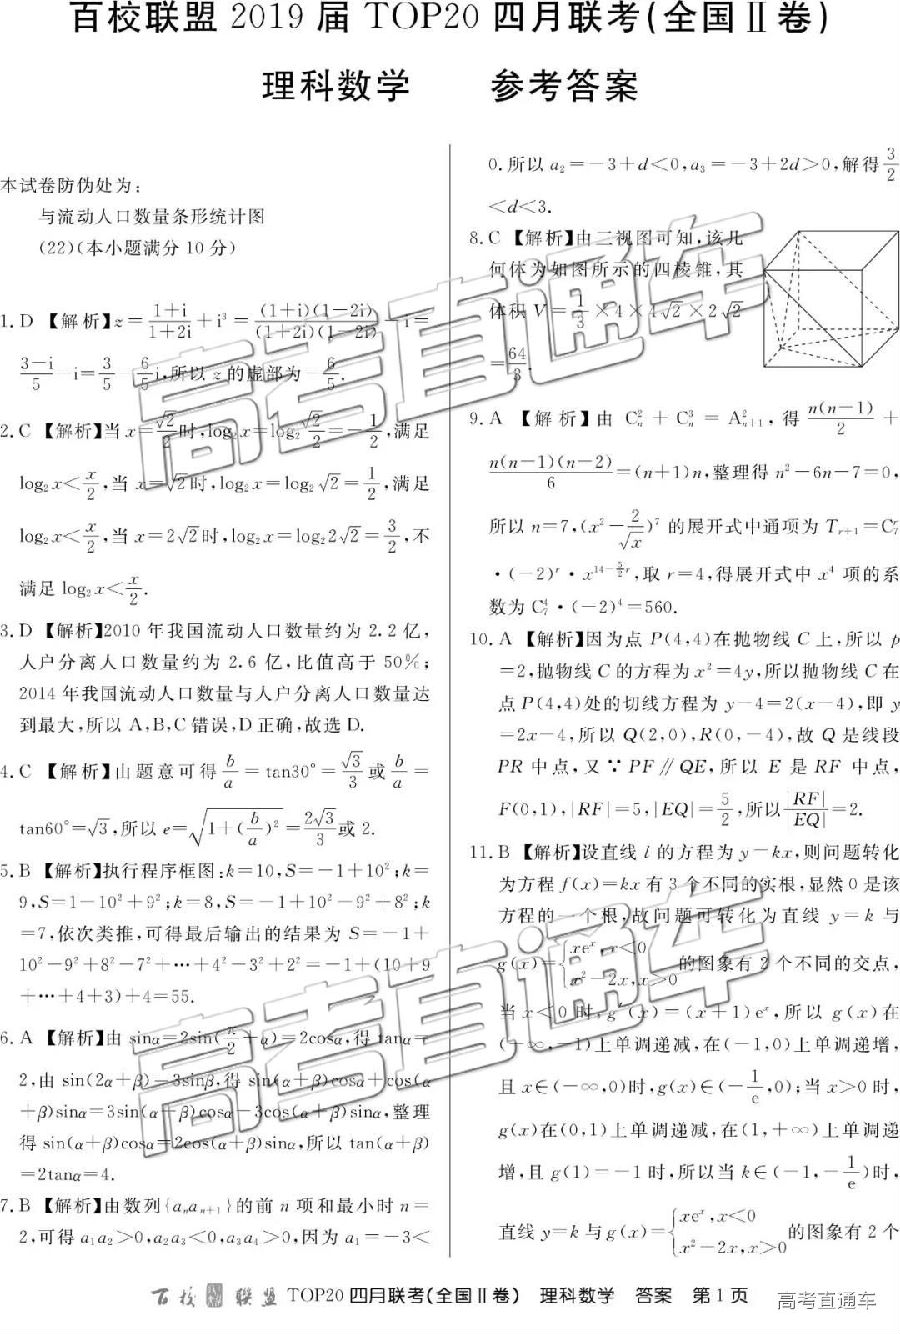 百校联盟 2019 届 TOP20 四月联考(全国Ⅱ卷)
理科数学 参考答案
本试卷防伪处为:
与流动人口数量条形统计图
(22)(本小题满分 10 分)
1. D 【解析】z=\frac{1+i}{1+2i}+i³=\frac{(1+i)(1-2i)}{(1+2i)(1-2i)}-i=
\frac{3-i}{5}-i=\frac{3}{5}-\frac{6}{5}i,所以 z 的虚部为-\frac{6}{5}.
2. C 【解析】当 x=\frac{√2}{2}时,log₂x=log₂\frac{√2}{2}=-\frac{1}{2},满足
log₂x<\frac{x}{2},当 x=√2时,log₂x=log₂√2=\frac{1}{2},满足
log₂x<\frac{x}{2},当 x=2√2时,log₂x=log₂2√2=\frac{3}{2},不
满足 log₂x<\frac{x}{2}.
3. D 【解析】2010 年我国流动人口数量约为 2.2 亿,
人户分离人口数量约为 2.6 亿,比值高于 50%;
2014 年我国流动人口数量与人户分离人口数量达
到最大,所以 A,B,C 错误,D 正确,故选 D.
4. C 【解析】由题意可得\frac{b}{a}=tan30°=\frac{√3}{3}或\frac{b}{a}=
tan60°=√3,所以 e=√(1+(\frac{b}{a})²)=\frac{2√3}{3}或 2.
5. B 【解析】执行程序框图:k=10,S=-1+10²;k=
9,S=1-10²+9²;k=8,S=-1+10²-9²+8²;k
=7,依次类推,可得最后输出的结果为 S=-1+
10²-9²+8²-7²+…+4²-3²+2²=-1+(10+9
+…+4+3)+4=55.
6. A 【解析】由 sinα=2sin(\frac{π}{2}+α)=2cosα,得 tanα=
2,由 sin(2α+β)=3sinβ,得 sin(α+β)cosα+cos(α
+β)sinα=3sin(α+β)cosα-3cos(α+β)sinα,整理
得 sin(α+β)cosα=2cos(α+β)sinα,所以 tan(α+β)
=2tanα=4.
7. B 【解析】由数列{aₙaₙ₊₁}的前 n 项和最小时 n=
2,可得 a₁a₂>0,a₂a₃<0,a₃a₄>0,因为 a₁=-3<
0.所以 a₂=-3+d<0,a₃=-3+2d>0,解得\frac{3}{2}
<d<3.
8. C 【解析】由三视图可知,该几
何体为如图所示的四棱锥,其
体积 V=\frac{1}{3}×4×4√2×2√2
=\frac{64}{3}.
9. A 【解析】由 C²ₙ+C³ₙ=A²ₙ₊₁,得\frac{n(n-1)}{2}+
\frac{n(n-1)(n-2)}{6}=(n+1)n,整理得 n²-6n-7=0,
所以 n=7,(x²-\frac{2}{√x})⁷ 的展开式中通项为 Tᵣ₊₁=Cʳ₇
·(-2)ʳ·x^{14-\frac{5}{2}r},取 r=4,得展开式中 x⁴ 项的系
数为 C⁴₇·(-2)⁴=560.
10. A 【解析】因为点 P(4,4)在抛物线 C 上,所以 p
=2,抛物线 C 的方程为 x²=4y,所以抛物线 C 在
点 P(4,4)处的切线方程为 y-4=2(x-4),即 y
=2x-4,所以 Q(2,0),R(0,-4),故 Q 是线段
PR 中点,又∵PF∥QE,所以 E 是 RF 中点,
F(0,1),|RF|=5,|EQ|=\frac{5}{2},所以\frac{|RF|}{|EQ|}=2.
11. B 【解析】设直线 l 的方程为 y=kx,则问题转化
为方程 f(x)=kx 有 3 个不同的实根,显然 0 是该
方程的一个根,故问题可转化为直线 y=k 与
g(x)={xeˣ,x<0 x²-2x,x>0 的图象有 2 个不同的交点,
当 x<0 时,g′(x)=(x+1)eˣ,所以 g(x)在
(-∞,-1)上单调递减,在(-1,0)上单调递增,
且 x∈(-∞,0)时,g(x)∈(-\frac{1}{e},0);当 x>0 时,
g(x)在(0,1)上单调递减,在(1,+∞)上单调递
增,且 g(1)=-1 时,所以当 k∈(-1,-\frac{1}{e})时,
直线 y=k 与 g(x)={xeˣ,x<0 x²-2x,x>0 的图象有 2 个
百校联盟 TOP20 四月联考(全国Ⅱ卷) 理科数学 答案 第 1 页
高考直通车
高考直通车
高考直通车